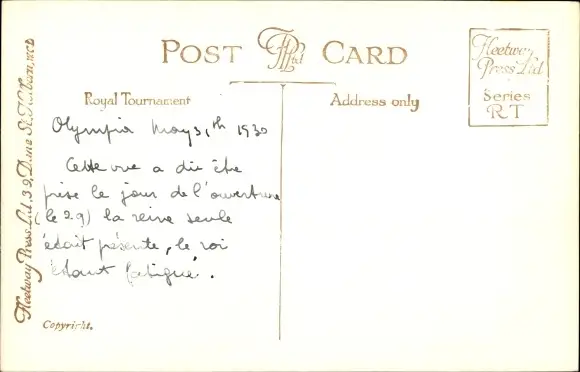 POST CARD
FP Ltd
Fleetway
Press Ltd
Series
R T
Royal Tournament
Address only
Olympia May 31th 1930
Cette vue a dû être
prise le jour de l'ouverture
(le 29) la reine seule
était présente, le roi
étant fatigué.
Copyright.
Fleetway Press Ltd, 3-9, Dane St, Holborn, WC1